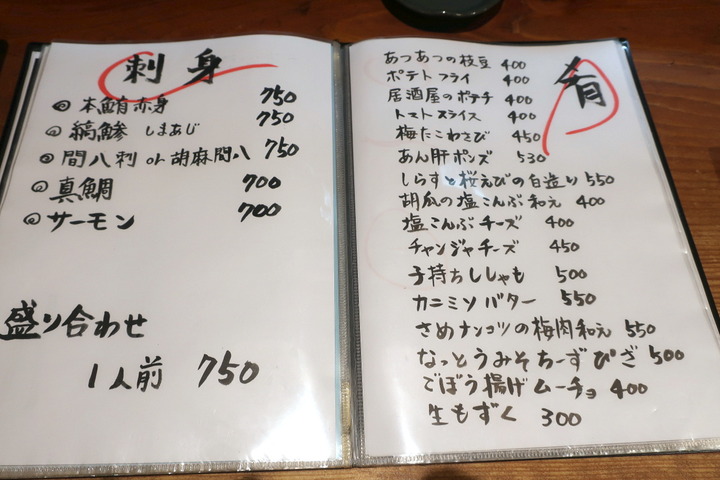 刺身
本鮪赤身 750
縞鯵 しまあじ 750
間八刺 or 胡麻間八 750
真鯛 700
サーモン 700
盛り合わせ
1人前 750
肴
あつあつの枝豆 400
ポテトフライ 400
居酒屋のポテチ 400
トマトスライス 400
梅たこわさび 450
あん肝ポンズ 530
しらすと桜えびの自造り 550
胡瓜の塩こんぶ和え 400
塩こんぶチーズ 400
チャンジャチーズ 450
子持ちししゃも 500
カニミソバター 550
さめナンコツの梅肉和え 550
なっとうみそちーずぴざ 500
ごぼう揚げムーチョ 400
生もずく 300